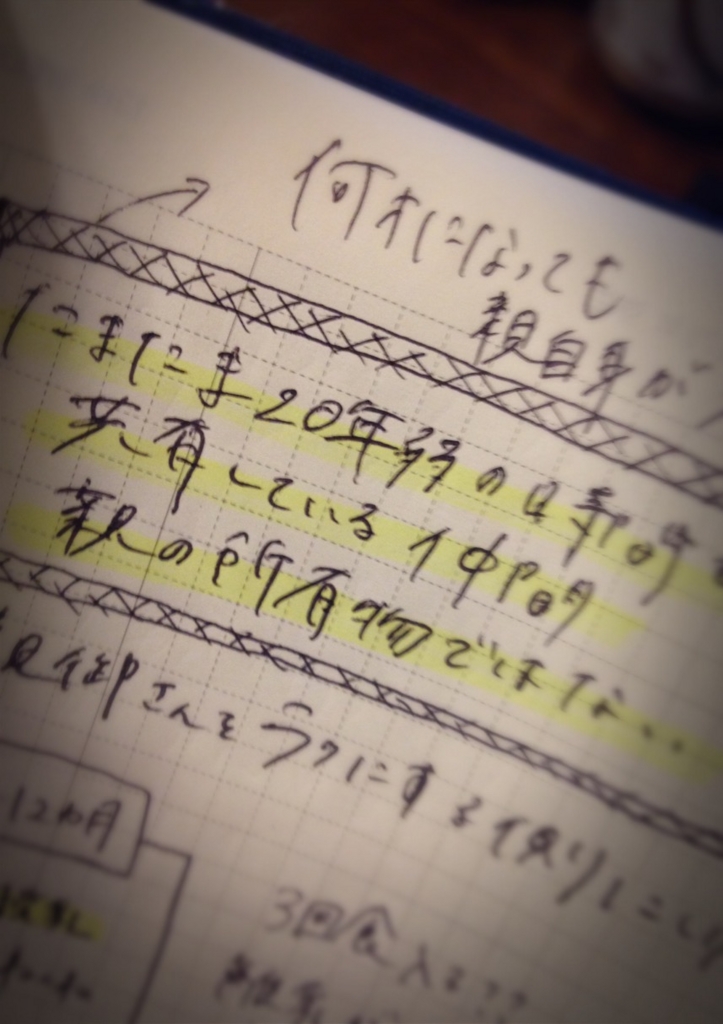 何才になっても
親自身が
たまたま20年弱の日々時を
共有している仲間
親の所有物ではない
親御さんをラクにする役割
12ヵ月
3回食